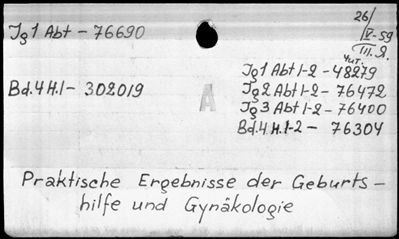 Jg 1 Abt - 76690
26/V-59
III. Я.
Чит.
Jg 1 Abt 1-2 - 48279
Bd. 4 H. 1 - 302019
Jg 2 Abt 1-2 - 76472
A
Jg 3 Abt 1-2 - 76400
Bd. 4 H. 1-2 - 76304
Praktische Ergebnisse der Geburts -
hilfe und Gynäkologie